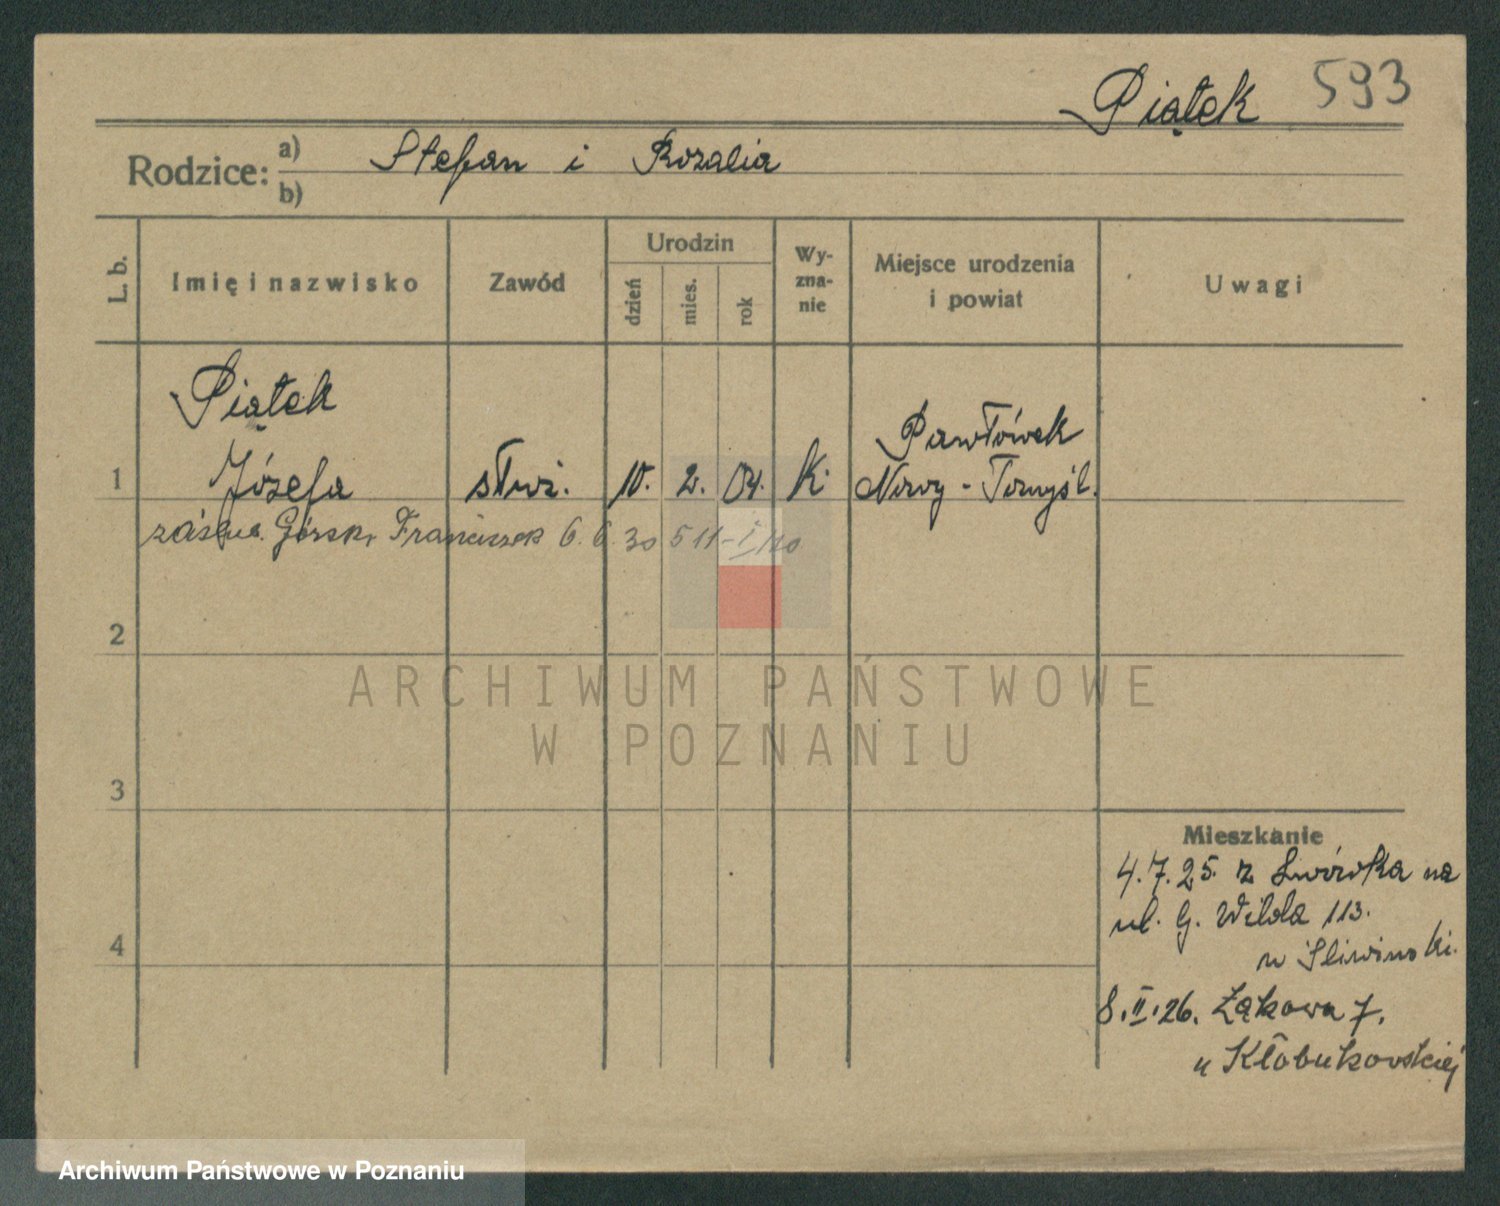 Piątek 593
Rodzice: a) Stefan i Rozalia
b)
L. b.
Imię i nazwisko
Zawód
Urodzin
dzień
mies.
rok
Wy-
zna-
nie
Miejsce urodzenia
i powiat
Uwagi
Piątek
Pawłówek
1 Józefa służ. 10. 2. 04. K. Nowy-Tomyśl.
zaślub. Górski Franciszek 6.6.30 511-I/
2
3
4
Mieszkanie
4.7.25. z Lwówka na
ul. G. Wilda 113.
u Sliwinski.
8.II.26. Łąkowa 7.
u Kłobukowskiej
ARCHIWUM PAŃSTWOWE
W POZNANIU
Archiwum Państwowe w Poznaniu